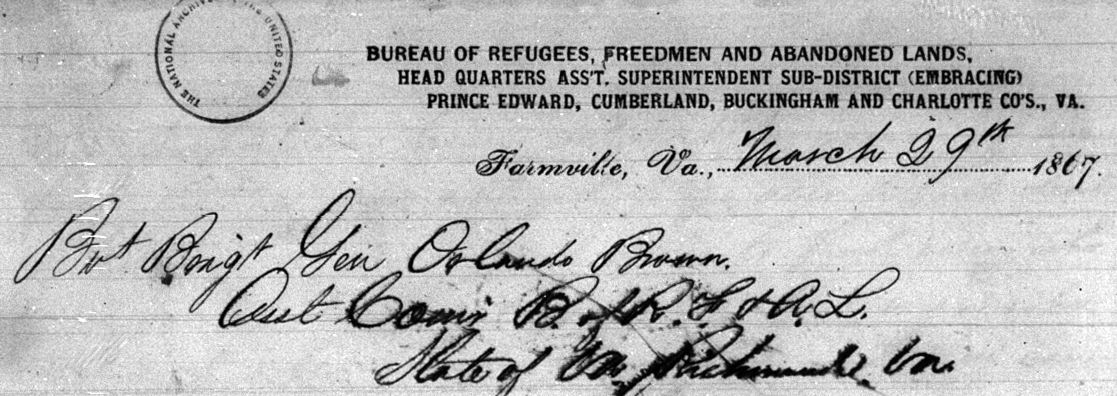 THE NATIONAL ARCHIVES OF THE UNITED STATES
BUREAU OF REFUGEES, FREEDMEN AND ABANDONED LANDS,
HEAD QUARTERS ASS'T. SUPERINTENDENT SUB-DISTRICT (EMBRACING)
PRINCE EDWARD, CUMBERLAND, BUCKINGHAM AND CHARLOTTE CO'S., VA.
Farmville, Va., March 29th 1867.
Bvt Brigt Gen Orlando Brown.
Asst Comr B. of R. F & A. L.
State of Va, Richmond Va.